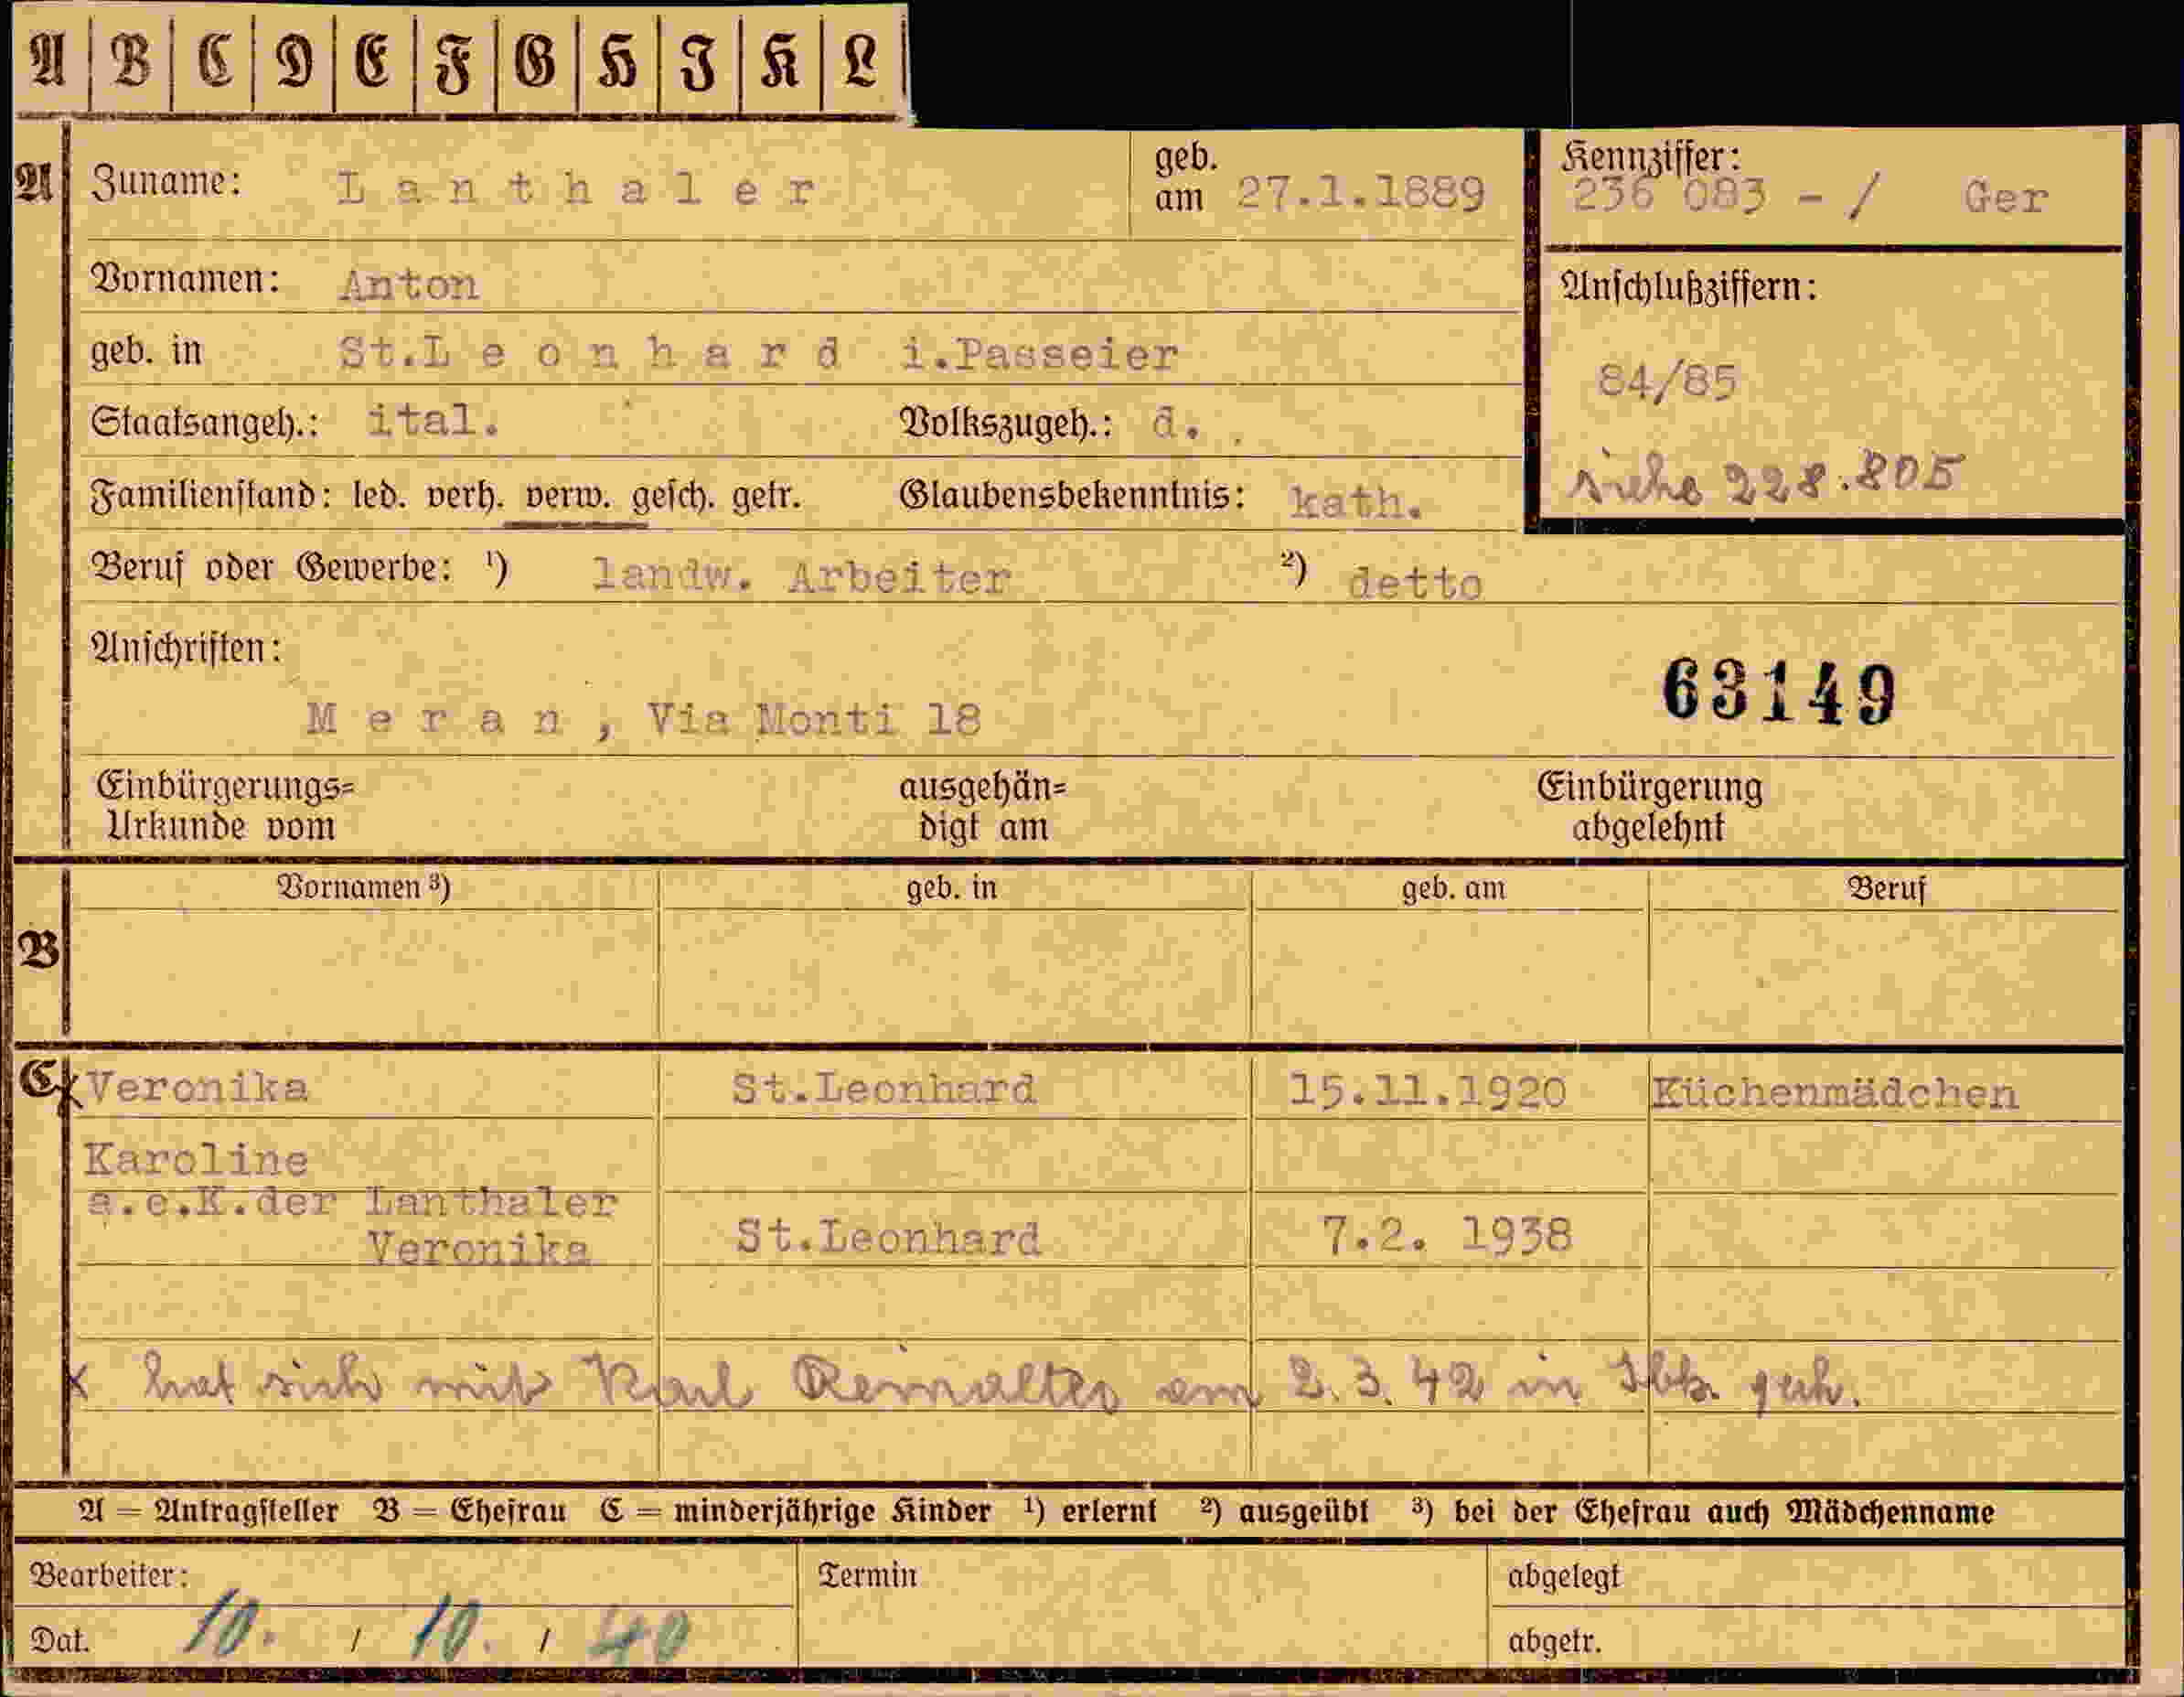 A B C D E F G H I K L
A Zuname: Lanthaler geb. am 27.1.1889 Kennziffer: 236 083 - / Ger
Vornamen: Anton Anschlußziffern:
geb. in St.Leonhard i.Passeier 84/85
Staatsangeh.: ital. Volkszugeh.: d.
siehe 228.805
Familienstand: led. verh. verw. gesch. getr. Glaubensbekenntnis: kath.
Beruf oder Gewerbe: ¹) landw. Arbeiter ²) detto
Anschriften:
Meran, Via Monti 18 63149
Einbürgerungs= ausgehän= Einbürgerung
Urkunde vom digt am abgelehnt
Vornamen ³) geb. in geb. am Beruf
B
C x Veronika St.Leonhard 15.11.1920 Küchenmädchen
Karoline
a.e.K.der Lanthaler
Veronika St.Leonhard 7.2. 1938
x hat sich mit Karl am 2.3.42 in Ibk.
A = Antragsteller B = Ehefrau C = minderjährige Kinder ¹) erlernt ²) ausgeübt ³) bei der Ehefrau auch Mädchenname
Bearbeiter: Termin abgelegt
Dat. 10. / 10. / 40 abgetr.